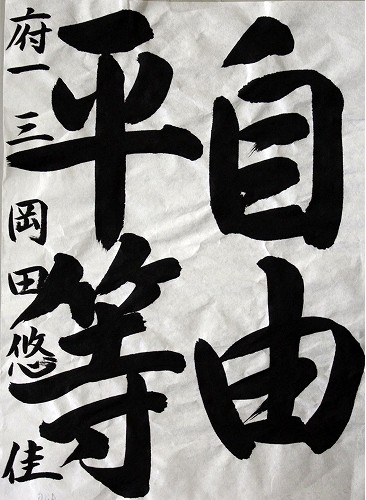 自由
平等
府一三 岡田悠佳